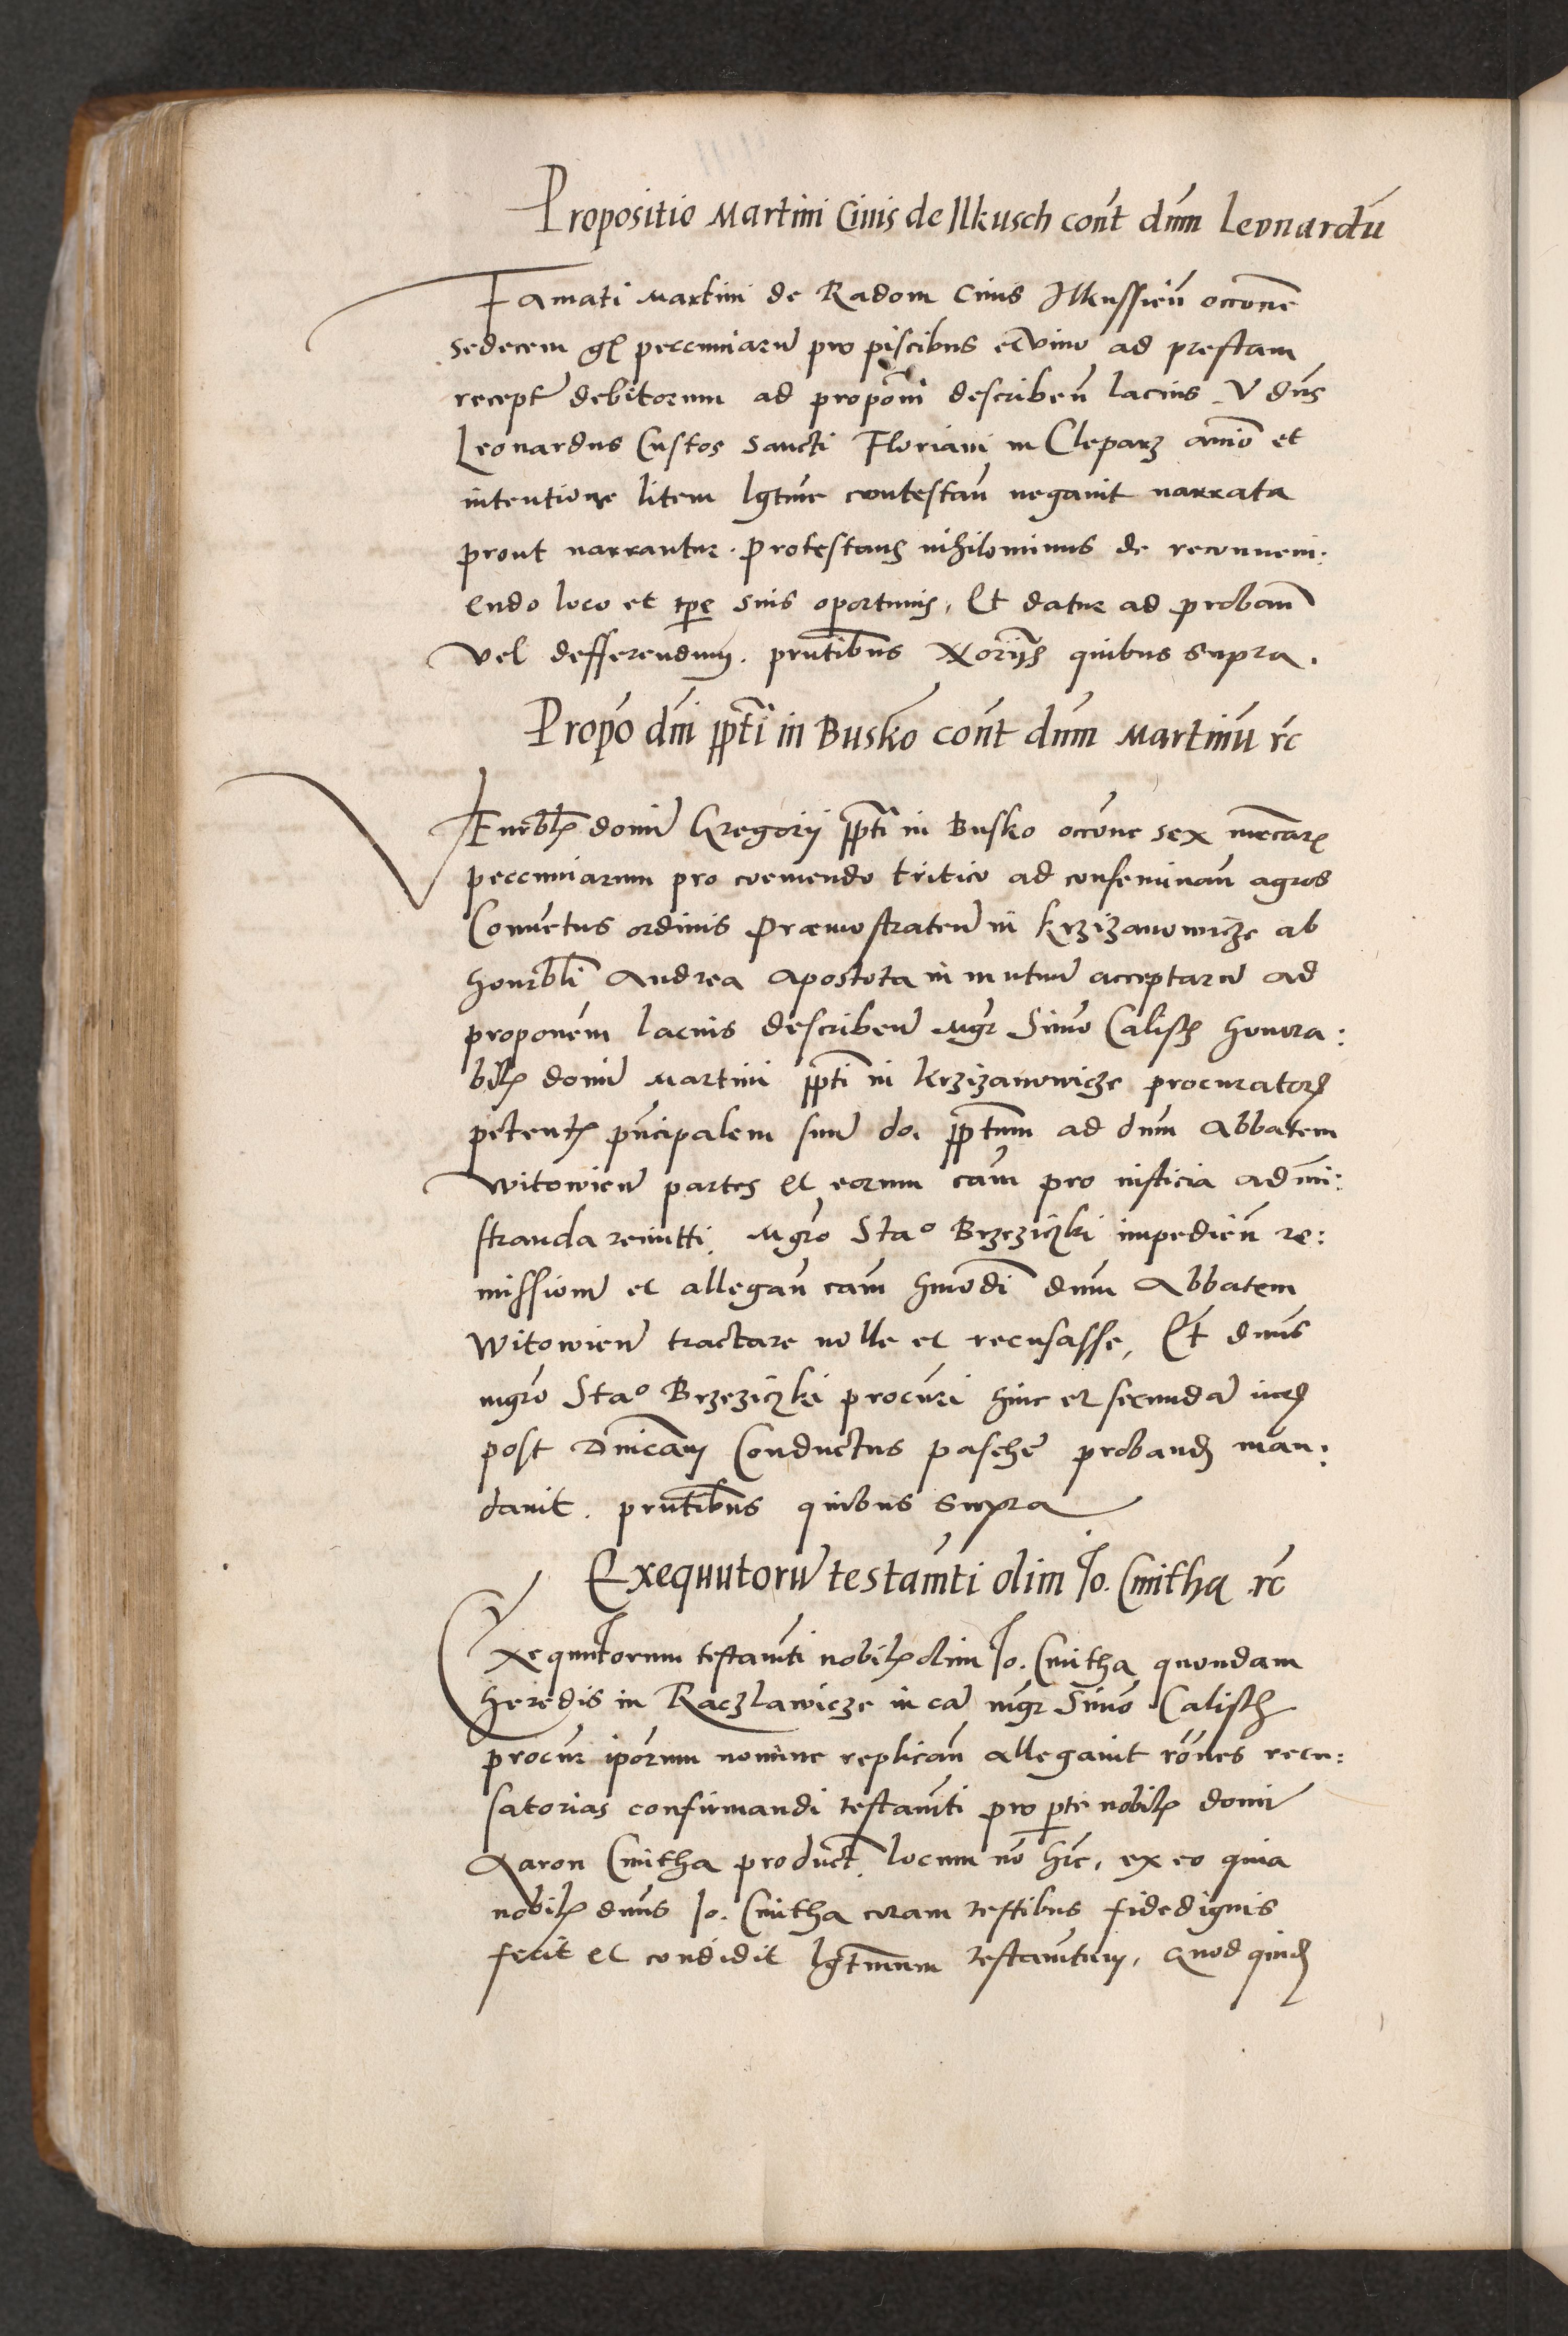 Propositio Martini Civis de Ilkusch cont dnm Leonardu
Famati Martini de Radom Civis Ilkussien occone
sedecem gl peccuniaru pro piscibus et vino ad prestam
recept debitorum ad proponi describen lacius V dns
Leonardus Custos Sancti Floriani in Cleparz animo et
intentione litem lgtime contestan negavit narrata
prout narrantur. Protestans nihilominus de reconveni:
endo loco et tpe suis oportunis, Et datur ad proband
vel defferendum. prntibus Xoriis quibus supra.
Propo dni ppti in Busko cont dnm Martinu rc
Venrbl domi Gregorii ppti in Busko occone sex mrcar
peccuniarum pro coemendo tritico ad conseminan agros
Conventus ordinis Præmostraten in Krzizanowicze ab
honrbli Andrea Apostota in mutuu acceptaru ad
proponem lacius describen Mgr Simo Calisch honora:
bil domi Martini ppti in Krzizanowicze procurator
petent principalem suu do. pptum ad dnm Abbatem
Witowien partes et eorum cam pro iusticia admi:
stranda remitti. Mgro Stao Brzeziczki impedien re:
missione et allegan cam hmodi dnm Abbatem
Witowien tractare nolle et recusasse, Et dnus
mgro Stao Brzeziczki procuri hinc et secunda iurd
post Dnicam Conductus pasche proband man:
davit. prntibus quibus supra
Exequutoru testamti olim Jo. Cmitha rc
Exequutorum testamti nobil olim Jo. Cmitha quondam
heredis in Raczlawicze in ca mgr Simo Calisch
procur iporum nomine replican allegavit rones recu:
satorias confirmandi testamti pro pte nobil domi
Aaron Cmitha product locum no hre, ex eo quia
nobil dnus Jo. Cmitha coram testibus fidedignis
fecit et condidit lgtimum testamtum, quod quid